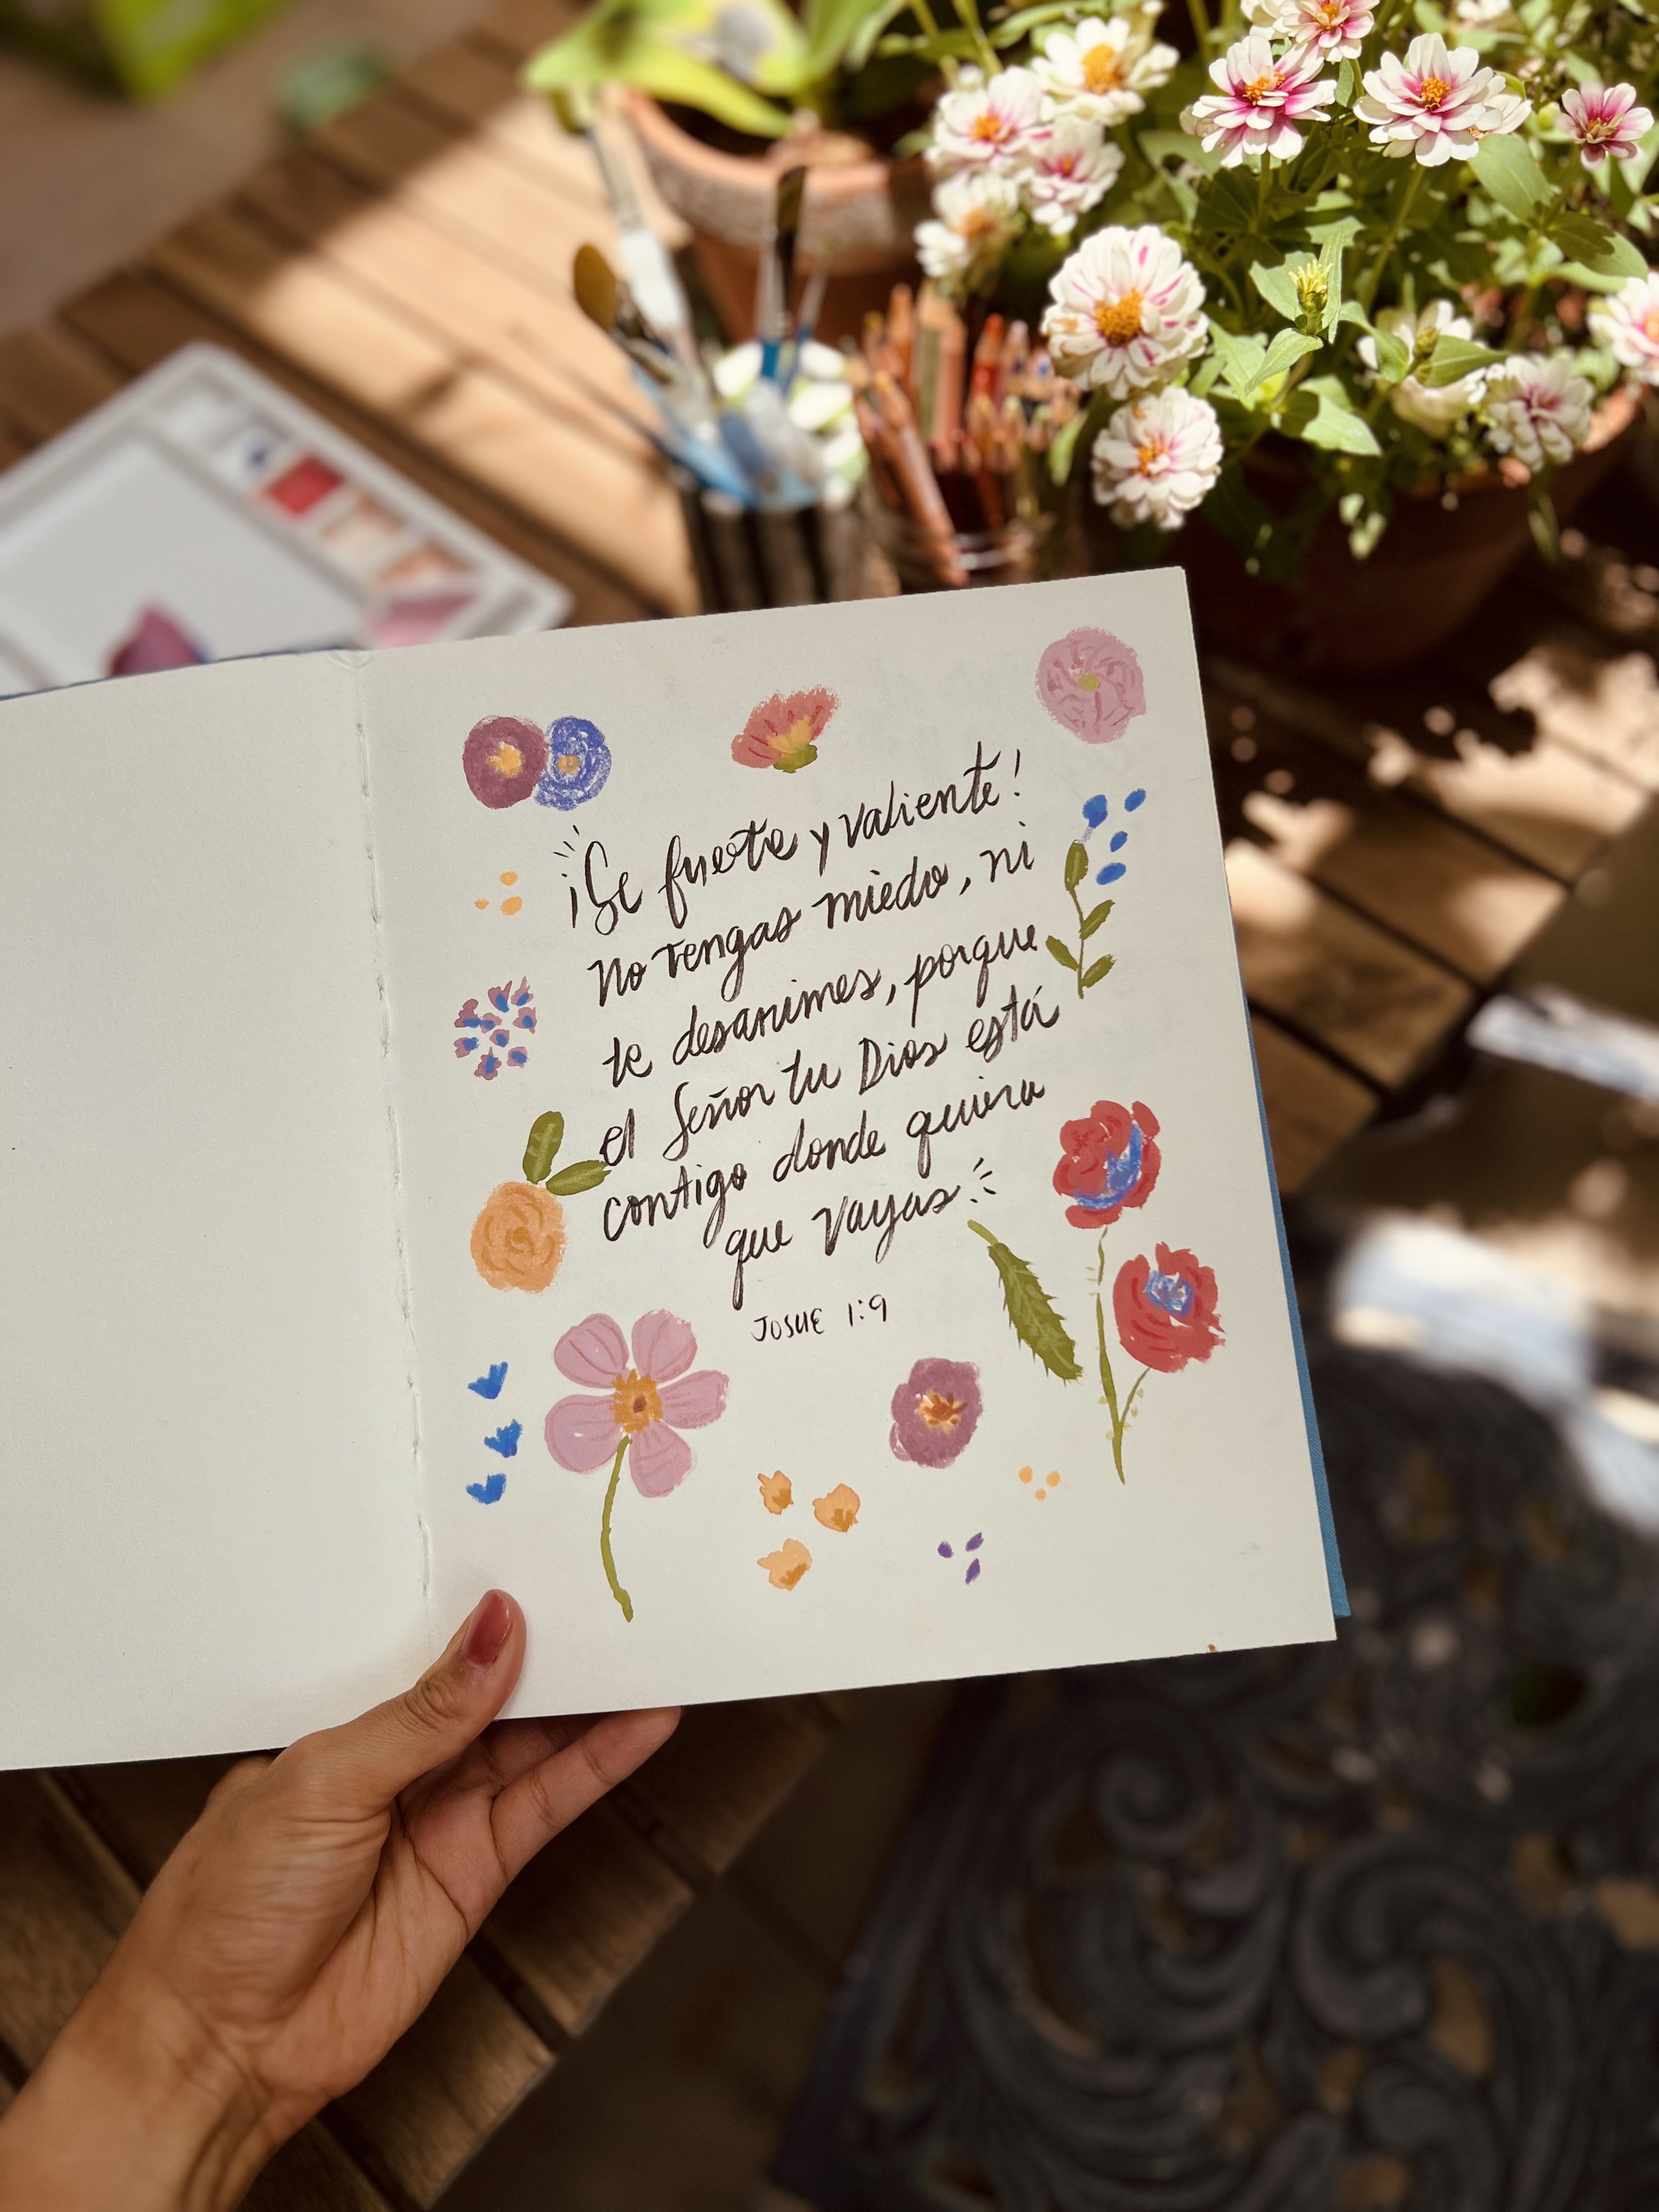 ¡Se fuerte y valiente!
No tengas miedo, ni
te desanimes, porque
el Señor tu Dios está
contigo donde quiera
que vayas.
JOSUE 1:9